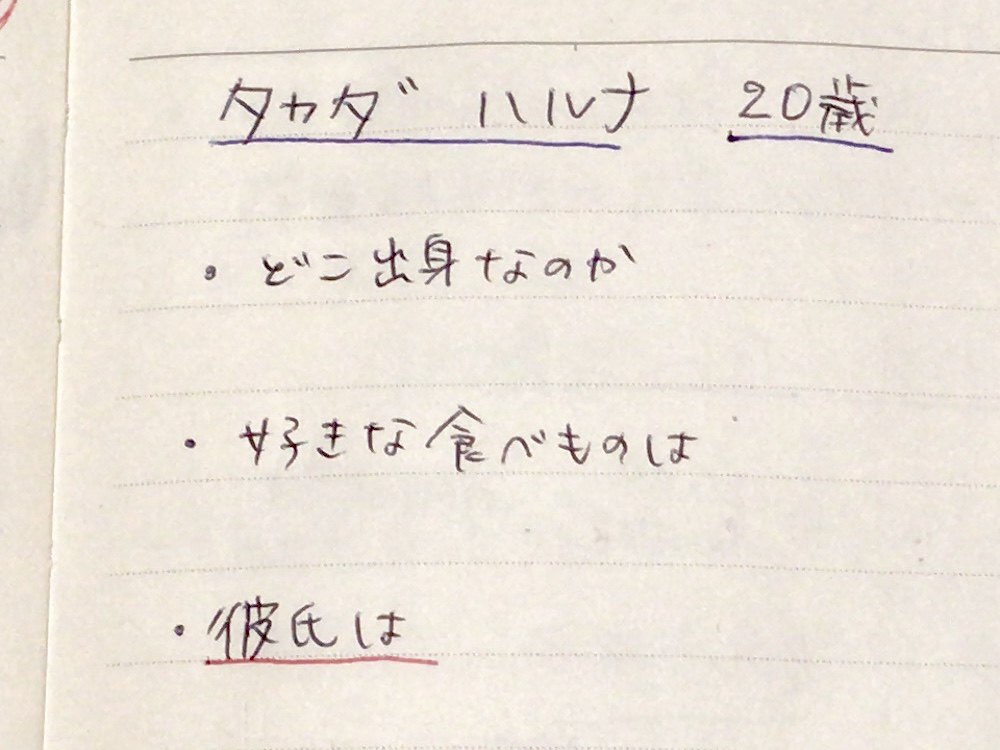 タカダ ハルナ 20歳
・どこ出身なのか
・好きな食べものは
・彼氏は